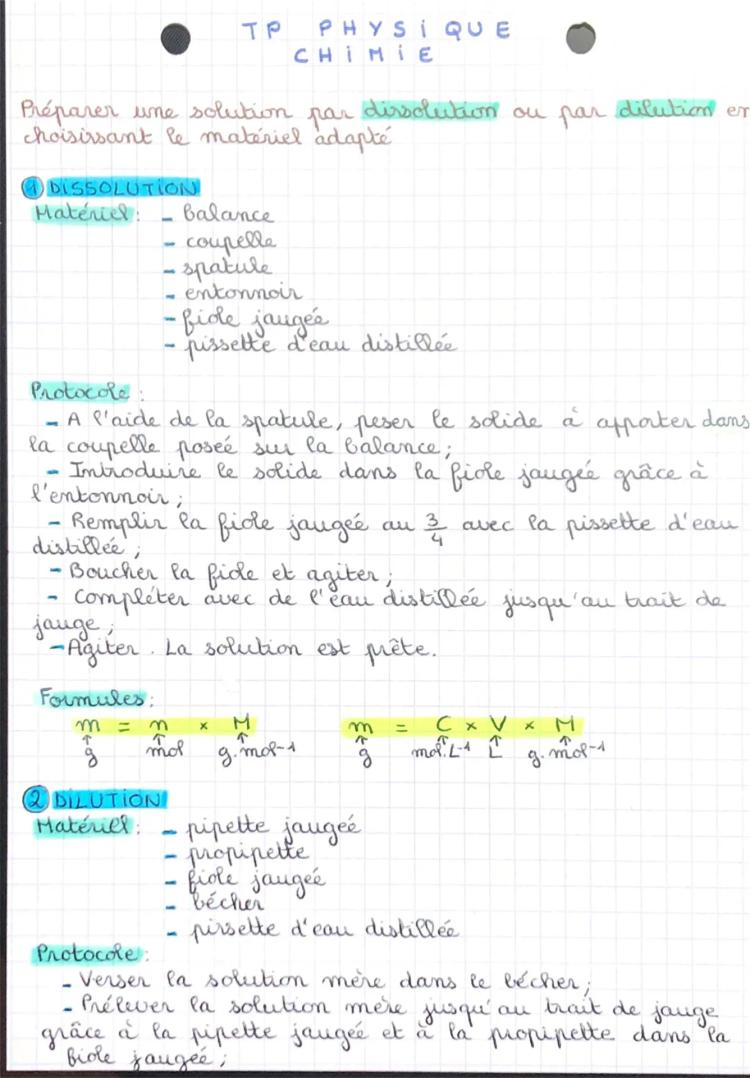 TP PHYSIQUE
CHIMIE
Préparer une solution par dissolution ou par dilution en
choisissant le matériel adapté
1 DISSOLUTION
Matériel : - balance
- coupelle
- spatule
- entonnoir
- fiole jaugée
- pissette d'eau distillée
Protocole :
- A l'aide de la spatule, peser le solide à apporter dans
la coupelle posée sur la balance ;
- Introduire le solide dans la fiole jaugée grâce à
l'entonnoir ;
- Remplir la fiole jaugée au 3/4 avec la pissette d'eau
distillée ;
- Boucher la fiole et agiter ;
- Compléter avec de l'eau distillée jusqu'au trait de
jauge ;
- Agiter. La solution est prête.
Formules :
m = n × M m = C × V × M
↑ ↑ ↑ ↑ ↑ ↑ ↑
g mol g.mol-1 g mol.L-1 L g.mol-1
2 DILUTION
Matériel : - pipette jaugée
- propipette
- fiole jaugée
- bécher
- pissette d'eau distillée
Protocole :
- Verser la solution mère dans le bécher ;
- Prélever la solution mère jusqu'au trait de jauge
grâce à la pipette jaugée et à la propipette dans la
fiole jaugée ;